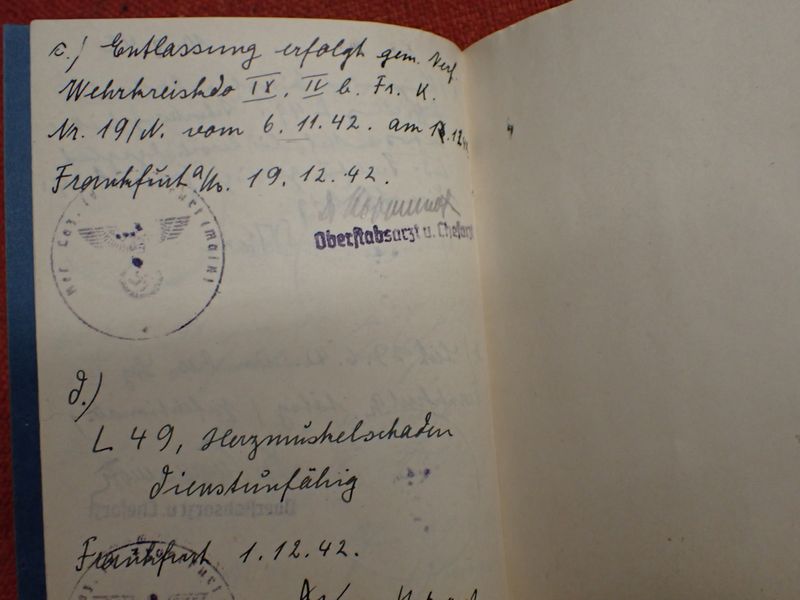 c.) Entlassung erfolgt gem. Verf.
Wehrkreiskdo IX. II b. Fr. K.
Nr. 19/N. vom 6. 11. 42. am
Frankfurt a/M. 19. 12. 42.
Oberstabsarzt u. Chefarzt
Res. Laz. (Main)
d.)
L 49, Herzmuskelschaden
dienstunfähig
Frankfurt 1. 12. 42.